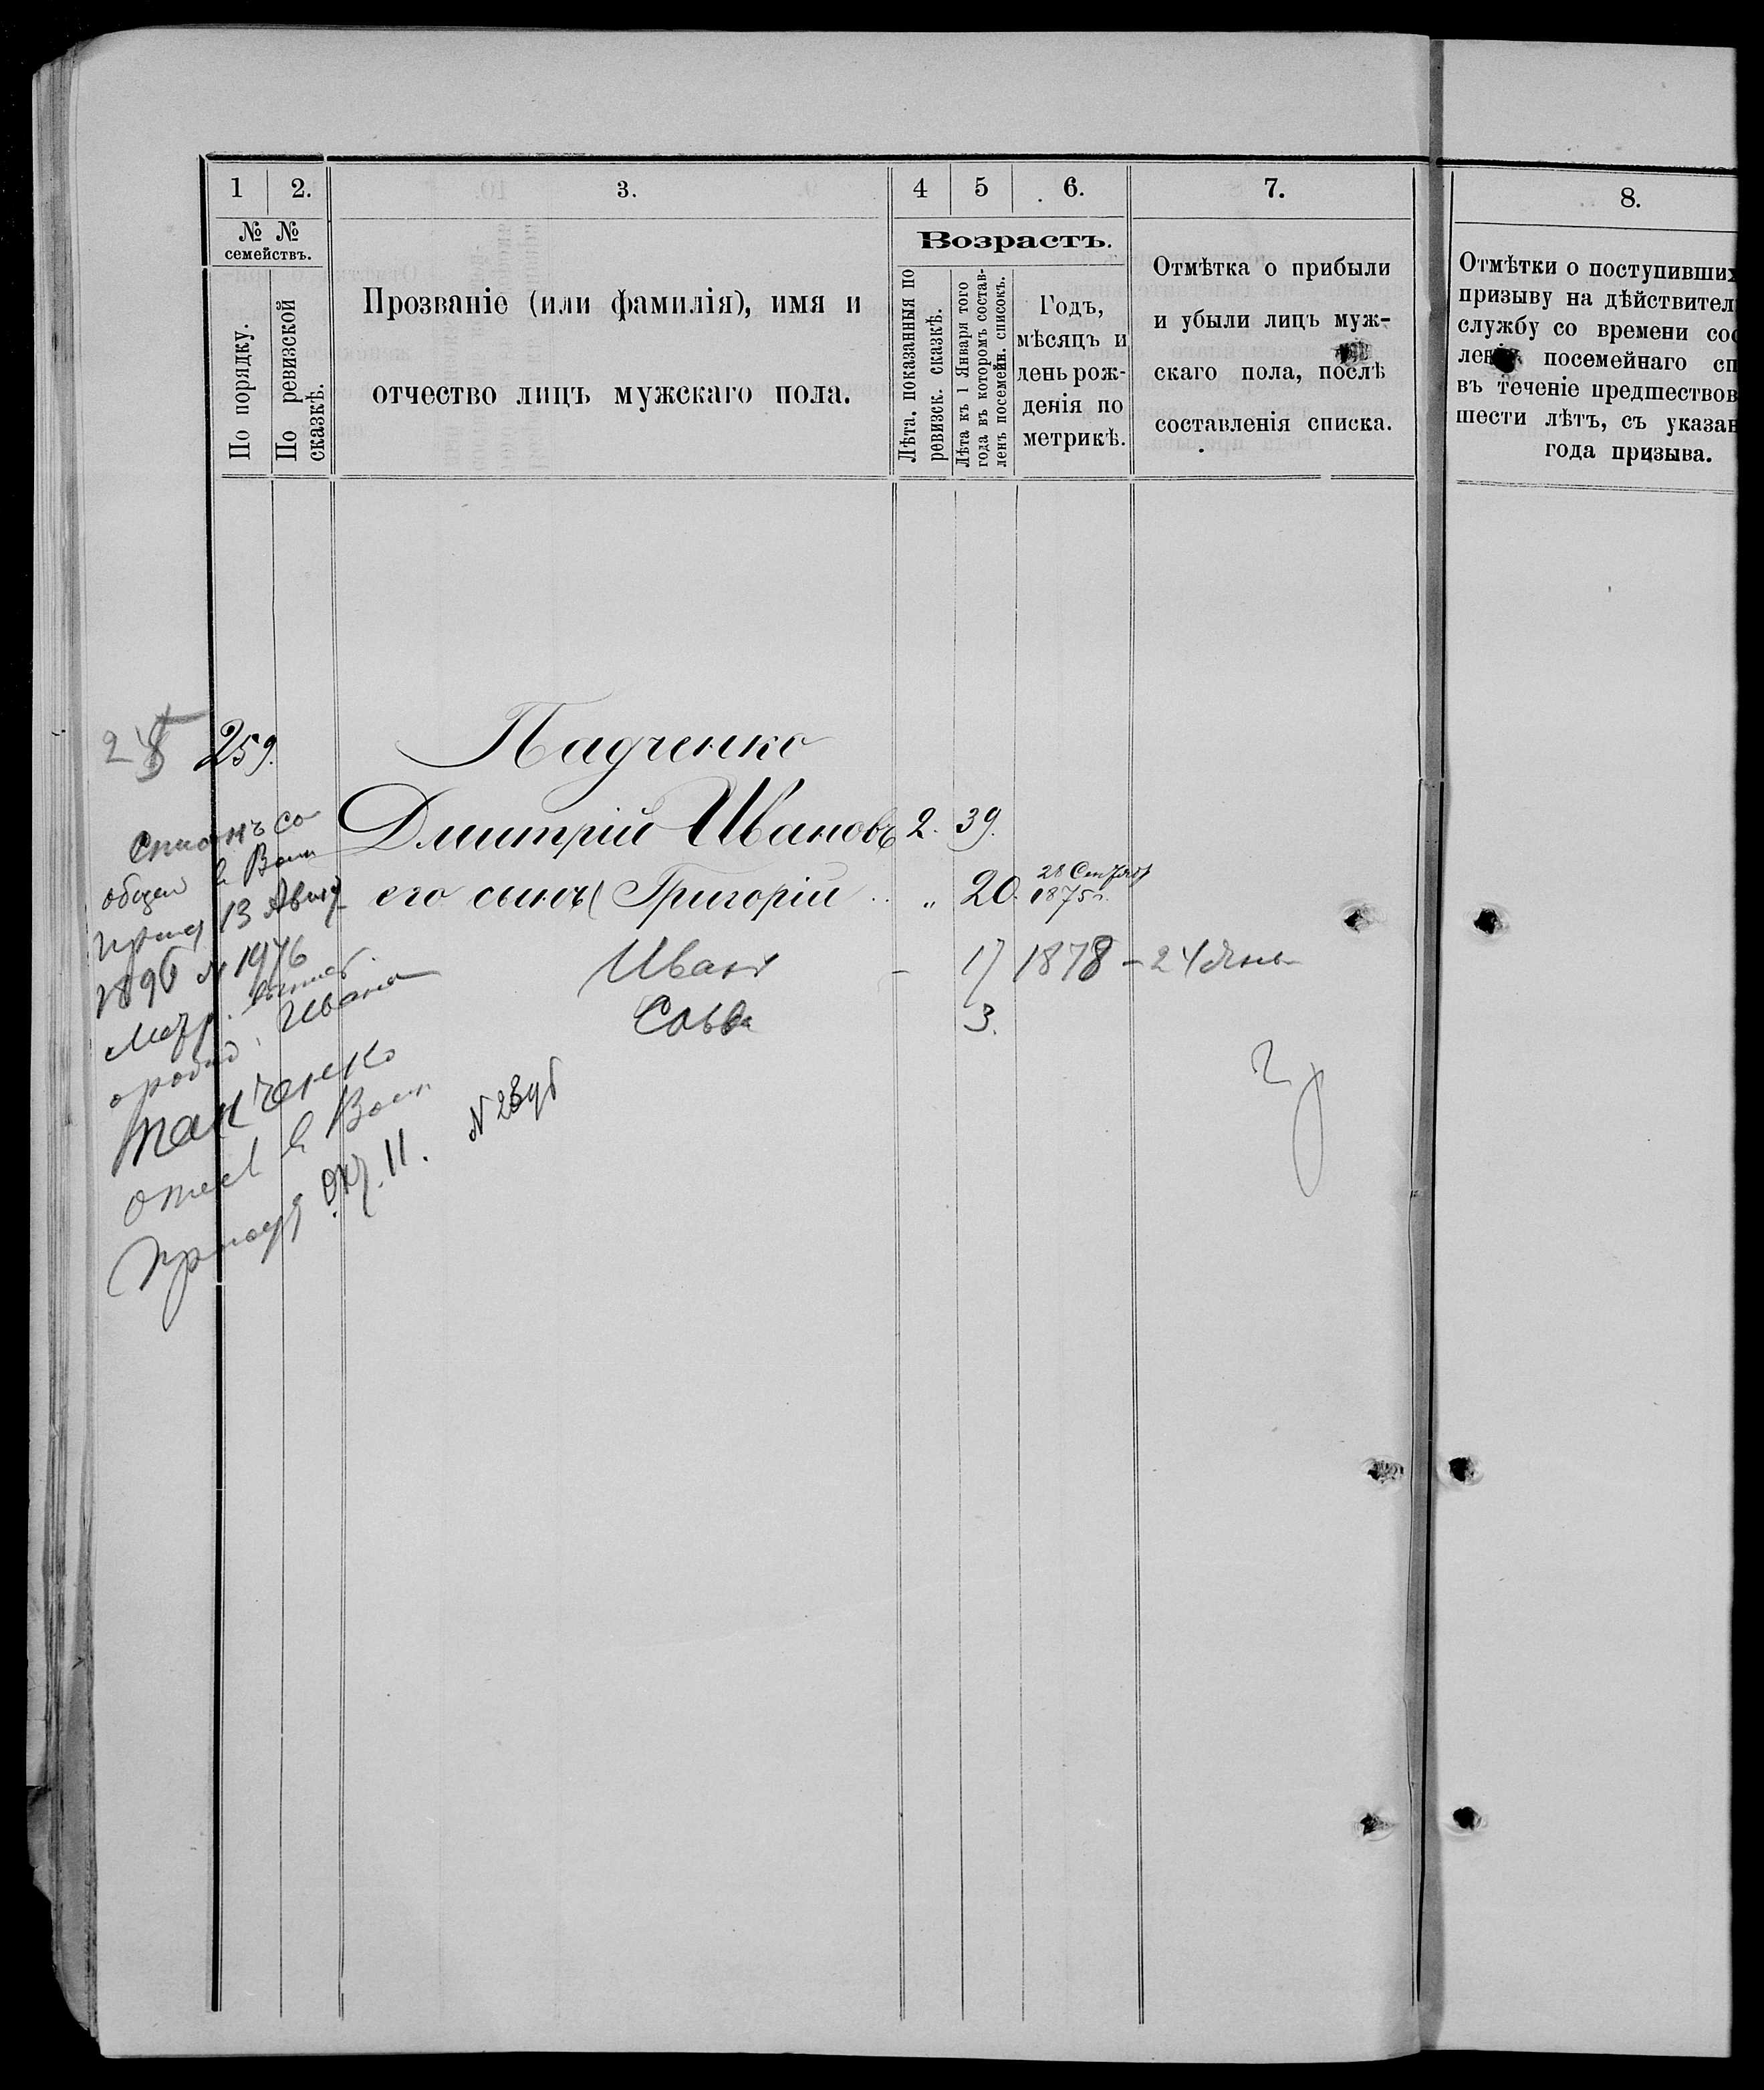 1 2. 3. 4 5 6. 7. 8.
№ № семействъ.
По порядку.
По ревизской сказкѣ.
Прозваніе (или фамилія), имя и
отчество лицъ мужскаго пола.
Возрастъ.
Лѣта, показанныя по
ревизск. сказкѣ.
Лѣта къ 1 Января того
года въ которомъ состав-
ленъ посемейн. списокъ.
Годъ,
мѣсяцъ и
день рож-
денія по
метрикѣ.
Отмѣтка о прибыли
и убыли лицъ муж-
скаго пола, послѣ
составленія списка.
Отмѣтки о поступивших
призыву на дѣйствител
службу со времени сос
ленія посемейнаго сп
въ теченіе предшествов
шести лѣтъ, съ указан
года призыва.
259. Падченко
Дмитрій Ивановъ 2. 39.
его сынъ Григорій .. „ 20. 28 Сентяб 1875 г.
Иванъ - 17 1878 - 24
Савва 3.
со
общен в Воин
13
1896 № 1976
Метр.
Ивана
в Воин
11. № 2396